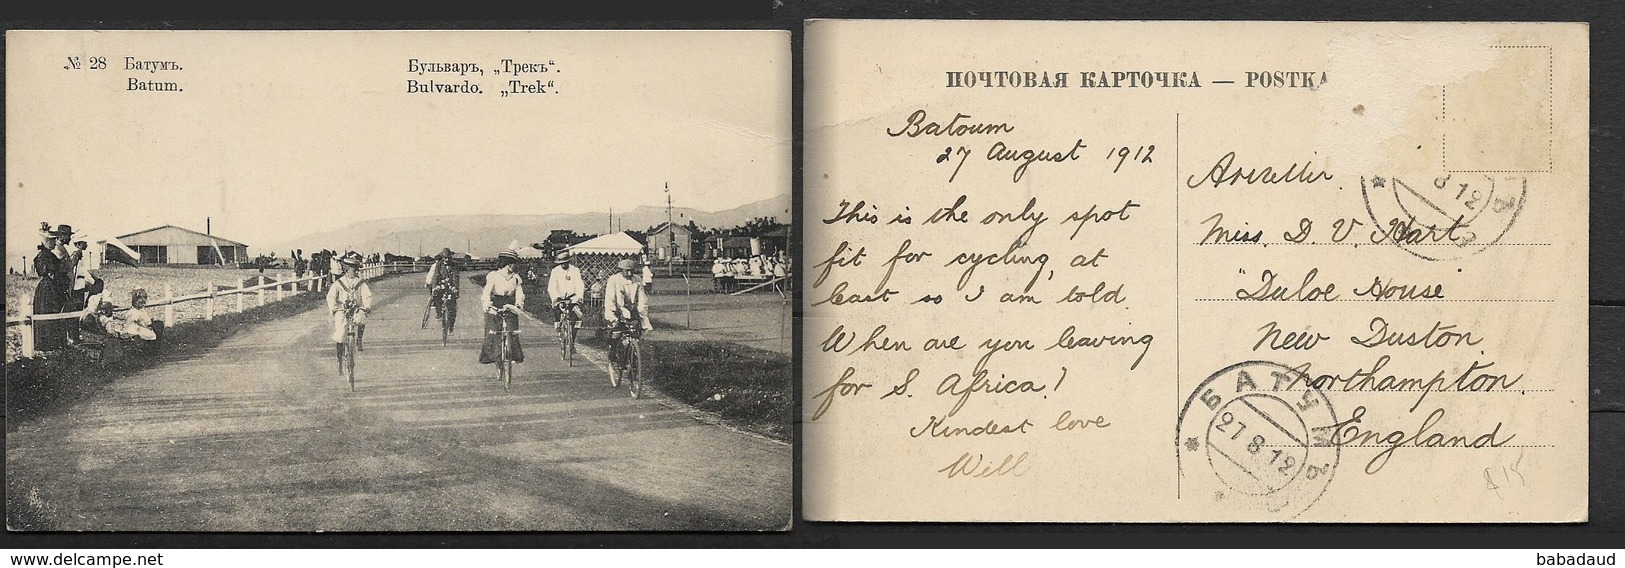 № 28 Батумъ.
Batum.
Бульваръ, „Трекъ“.
Bulvardo. „Trek“.
ПОЧТОВАЯ КАРТОЧКА — POSTKA
Batoum
27 August 1912
This is the only spot
fit for cycling, at
least so I am told.
When are you leaving
for S. Africa?
Kindest love
Will
Miss. D. V. Hart
"Duloe House
New Duston.
Northampton.
England
8 12
БАТУМЪ
27 8 12
babadaud